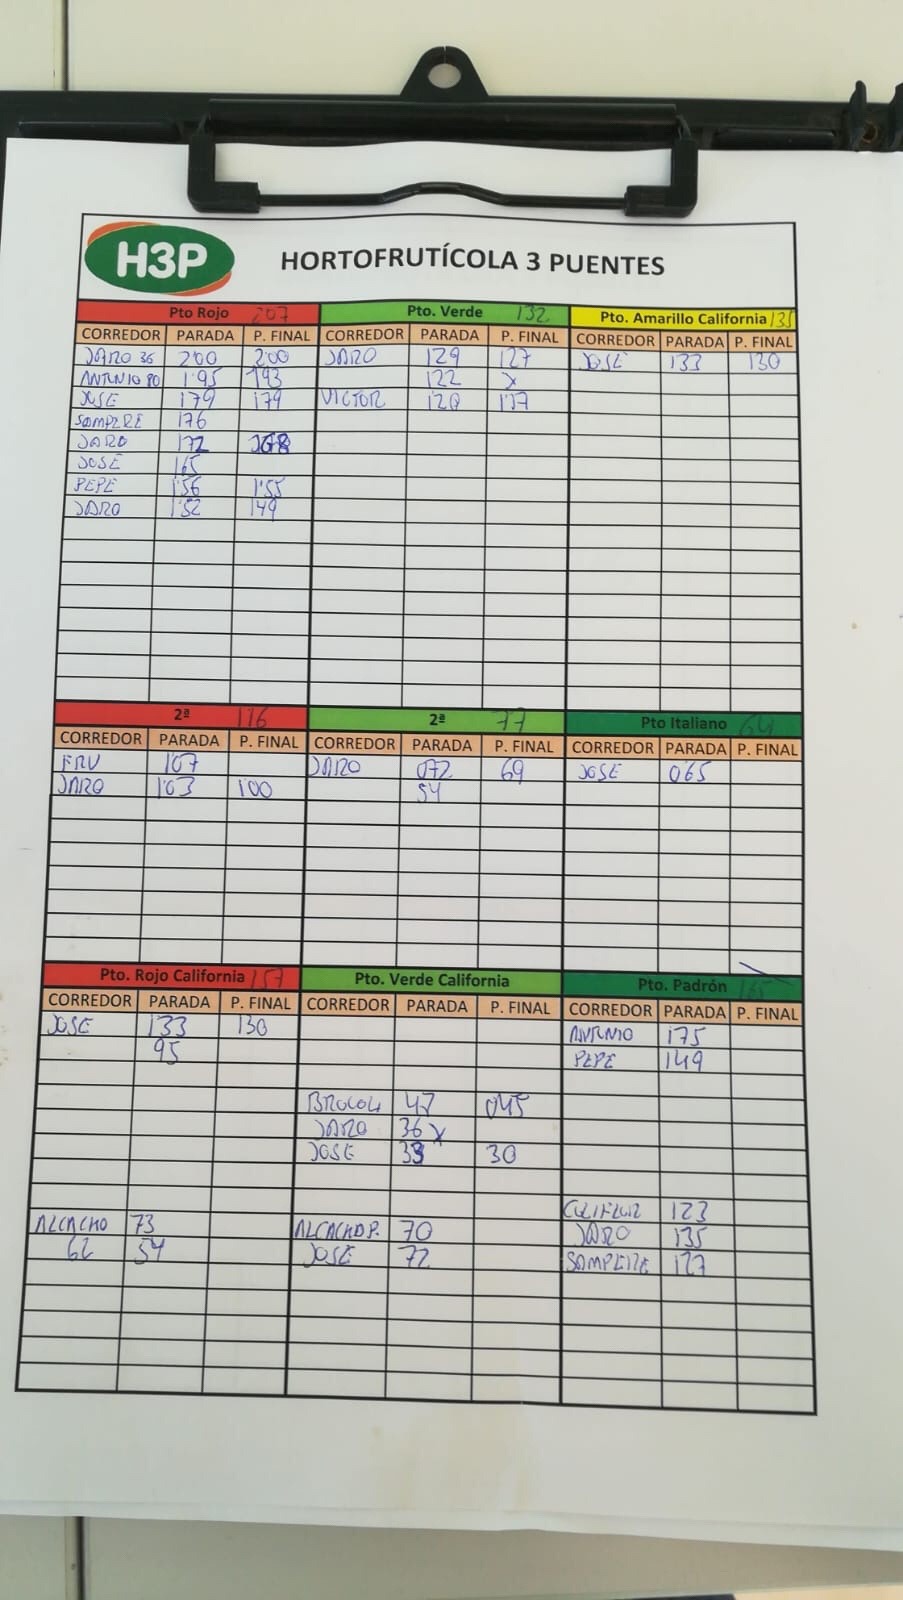 H3P HORTOFRUTÍCOLA 3 PUENTES
Pto Rojo 207 Pto. Verde 132 Pto. Amarillo California 135
CORREDOR PARADA P. FINAL CORREDOR PARADA P. FINAL CORREDOR PARADA P. FINAL
JARO 36 200 200 JARO 129 127 JOSE 133 130
ANTONIO 80 1'95 193 122 X
JOSE 179 179 VICTOR 120 117
SAMPERE 176
JARO 172 168
JOSE 165
PEPE 1'56 1'55
JARO 1'52 149
2ª 116 2ª 77 Pto Italiano 64
CORREDOR PARADA P. FINAL CORREDOR PARADA P. FINAL CORREDOR PARADA P. FINAL
FRU 1'07 JARO 072 69 JOSE 065
JARO 1'03 100 54
Pto. Rojo California 157 Pto. Verde California Pto. Padrón 165
CORREDOR PARADA P. FINAL CORREDOR PARADA P. FINAL CORREDOR PARADA P. FINAL
JOSE 133 130 ANTONIO 175
95 PEPE 149
BROCOLI 47 045
JARO 36 X
JOSE 33 30
COLIFLOR 123
ALCACHO 73 ALCACHOF. 70 JARO 135
62 54 JOSE 72 SAMPERE 127